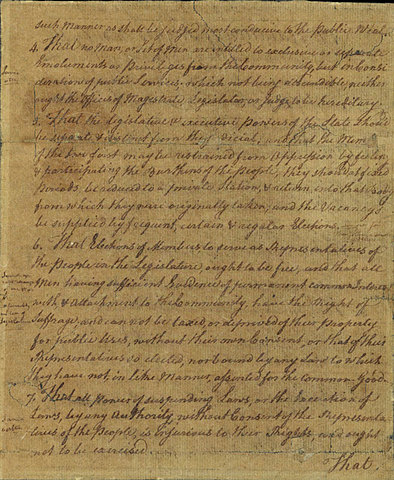 such Manner as shall be judged most conducive to the public Weal.
4. That no man, or set of Men are intitled to exclusive or separate
Emoluments or Privileges from the Community, but in Consi-
deration of public Services; which not being descendible, neither
ought the Offices of Magistrate, Legislator, or Judge, to be hereditary.
5. That the legislative & executive powers of the State should
be separate & distinct from the judicial; and that the Mem
of the two first may be restrained from Oppression, by feeling
& participating the Burthens of the People, they should at fixed
Periods be reduced to a private Station, & return into that Body
from which they were originally taken, and the Vacancys
be supplied by frequent, certain & regular Elections.
6. That Elections of Members to serve as Representatives of
the People in the Legislature ought to be free, and that all
Men having sufficient Evidence of permanent common Interest
with & attachment to the Community, have the Right of
Suffrage, and can not be taxed, or deprived of their Property
for public Uses, without their own Consent, or that of their
Representatives so elected, nor bound by any Law to which
they have not, in like Manner, assented for the common Good.
7. That all power of suspending Laws, or the Execution of
Laws, by any Authority, without Consent of the Representa
tives of the People, is injurious to their Rights, and ought
not to be exercised.
That